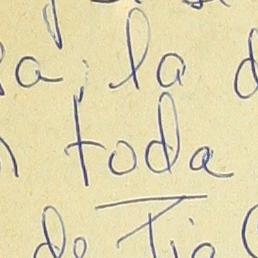 a, la d
toda
de Tia